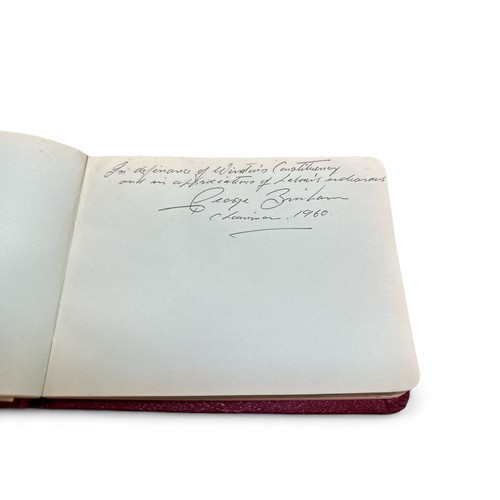 In defiance of Winston's Constituency
and in appreciation of Labour's endeavours
George
Chairman. 1960